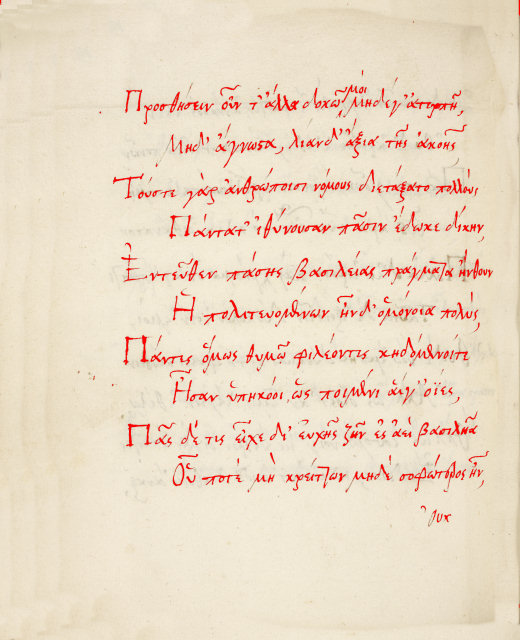 Προσθήσειν οὖν τ' ἄλλα δοκῶ μοὶ μηδέν' ἀτερπῆ,
Μηδ' ἄγνωϛα, λίαν δ' ἄξια τῆς ἀκοῆς
Τούστε γὰρ ἀνθρώποισι νόμους διετάξατο πολλοὺς
Πάντατ' ἰθύνουσαν πᾶσιν ἔδωκε δίκην,
Ἐντεῦθεν πάσης βασιλείας πράγματα ἤνθουν
Ἡ πολιτευομένων ἦν δ' ὁμόνοια πολὺς,
Πάντες ὅμως θυμῷ φιλέοντες κηδόμενοιτε
Ἦσαν ὑπηκόοι, ὡς ποιμένι οἶες,
Πᾶς δέ τις εἶχε δι' εὐχῆς ζῆν ἐς ἀεὶ βασιλῆα
Οὗ ποτὲ μὴ κρείττων μηδὲ σοφώτερος ἦν,
οὐκ